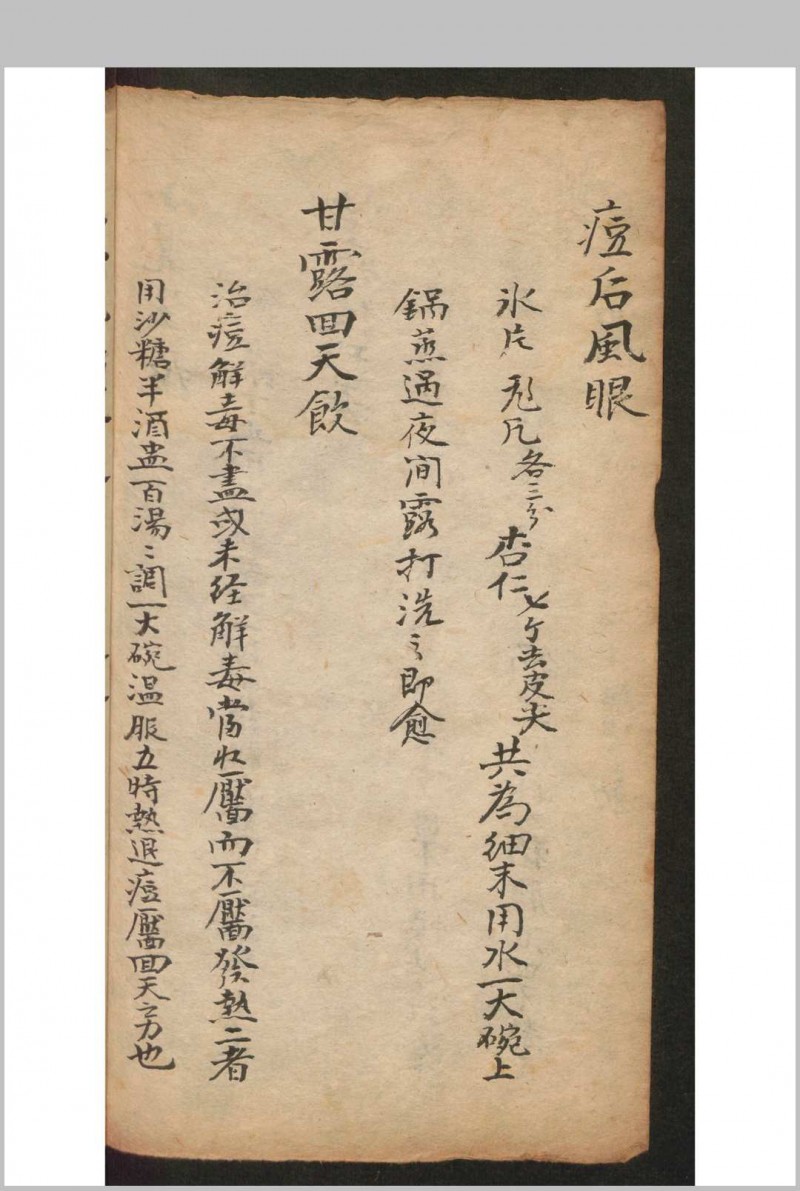 痘后風眼
氷片 飛凡各三分 杏仁七个去皮尖 共為细末用水一大碗上
鍋蒸過夜间露打洗之即愈
甘露回天飲
治痘解毒不盡或未经解毒當收靨而不靨發熱二者
用沙糖半酒盅百湯〻調一大碗温服五時熱退痘靨回天之力也